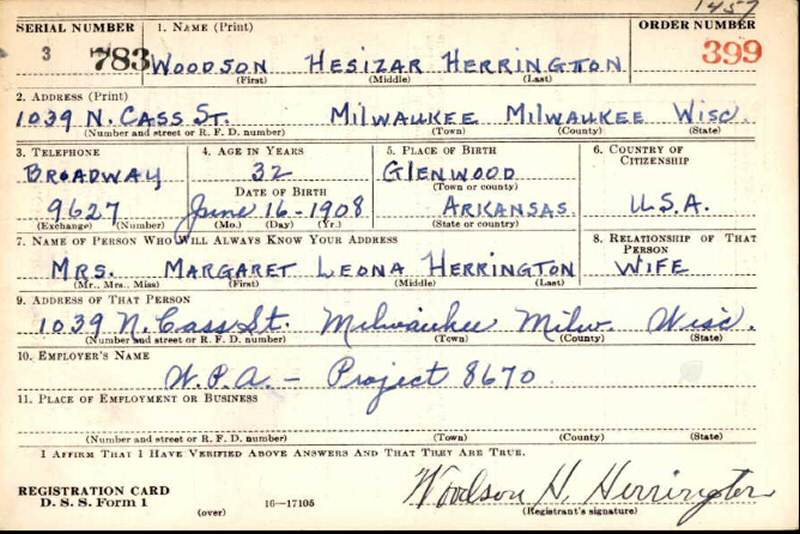 1457
SERIAL NUMBER 1. NAME (Print) ORDER NUMBER
3 783 WOODSON HESIZAR HERRINGTON 399
(First) (Middle) (Last)
2. ADDRESS (Print)
1039 N. CASS ST. MILWAUKEE MILWAUKEE WISC.
(Number and street or R. F. D. number) (Town) (County) (State)
3. TELEPHONE 4. AGE IN YEARS 5. PLACE OF BIRTH 6. COUNTRY OF CITIZENSHIP
BROADWAY 32 GLENWOOD
DATE OF BIRTH (Town or county)
9627 June 16-1908 ARKANSAS. U.S.A.
(Exchange) (Number) (Mo.) (Day) (Yr.) (State or country)
7. NAME OF PERSON WHO WILL ALWAYS KNOW YOUR ADDRESS 8. RELATIONSHIP OF THAT PERSON
MRS. MARGARET LEONA HERRINGTON WIFE
(Mr., Mrs., Miss) (First) (Middle) (Last)
9. ADDRESS OF THAT PERSON
1039 N. Cass St. Milwaukee Milw. Wisc.
(Number and street or R. F. D. number) (Town) (County) (State)
10. EMPLOYER'S NAME
W.P.A. - Project 8670
11. PLACE OF EMPLOYMENT OR BUSINESS
(Number and street or R. F. D. number) (Town) (County) (State)
I AFFIRM THAT I HAVE VERIFIED ABOVE ANSWERS AND THAT THEY ARE TRUE.
REGISTRATION CARD Woodson H. Herrington
D. S. S. Form 1 (over) 16—17105 (Registrant's signature)